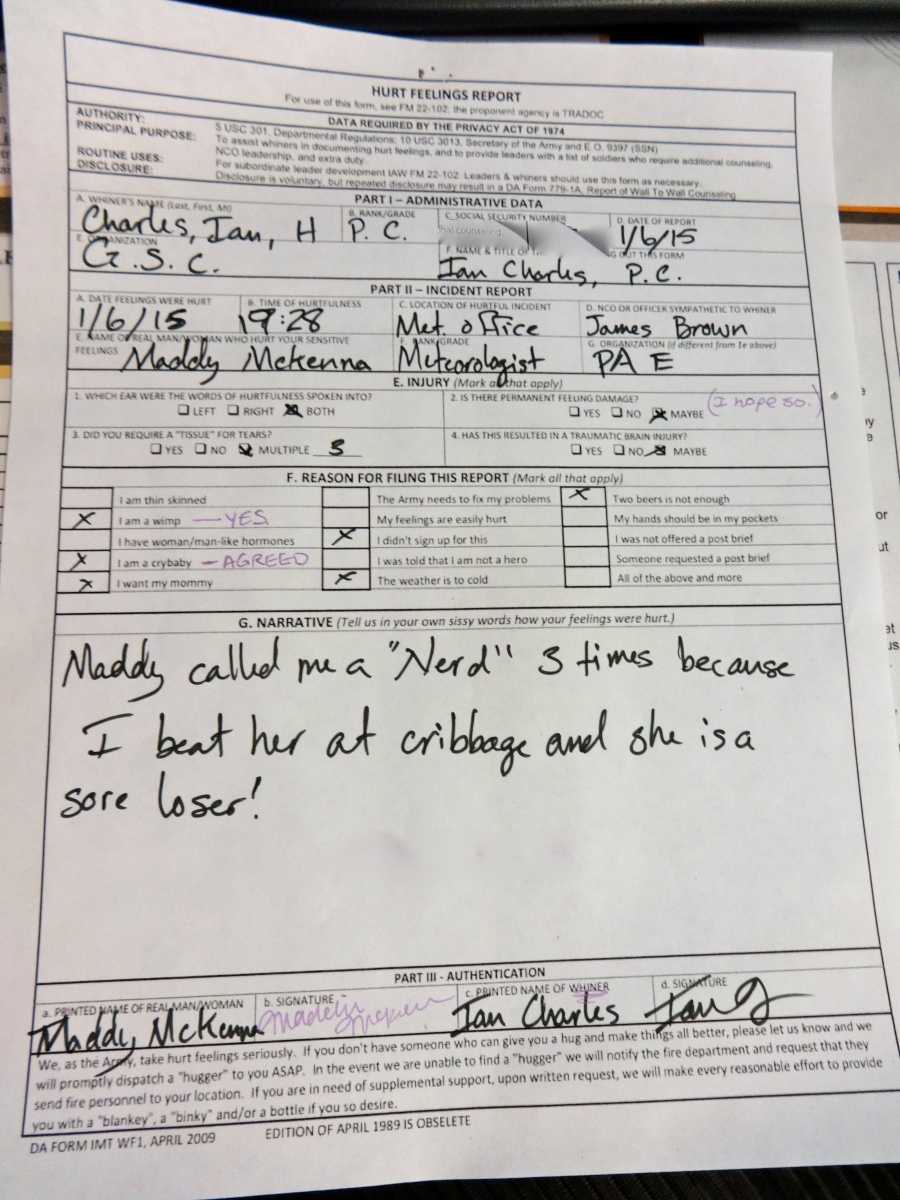 HURT FEELINGS REPORT
For use of this form, see FM 22-102; the proponent agency is TRADOC
DATA REQUIRED BY THE PRIVACY ACT OF 1974
AUTHORITY: 5 USC 301, Departmental Regulations; 10 USC 3013, Secretary of the Army and E.O. 9397 (SSN)
PRINCIPAL PURPOSE: To assist whiners in documenting hurt feelings, and to provide leaders with a list of soldiers who require additional counseling,
NCO leadership, and extra duty.
ROUTINE USES: For subordinate leader development IAW FM 22-102. Leaders & whiners should use this form as necessary.
DISCLOSURE: Disclosure is voluntary, but repeated disclosure may result in a DA Form 779-1A, Report of Wall To Wall Counseling
PART I – ADMINISTRATIVE DATA
A. WHINER'S NAME (Last, First, MI) B. RANK/GRADE C. SOCIAL SECURITY NUMBER D. DATE OF REPORT
Charles, Ian, H P. C. 1/6/15
E. ORGANIZATION F. NAME & TITLE OF OUT THIS FORM
G.S.C. Ian Charles, P.C.
PART II – INCIDENT REPORT
A. DATE FEELINGS WERE HURT B. TIME OF HURTFULNESS C. LOCATION OF HURTFUL INCIDENT D. NCO OR OFFICER SYMPATHETIC TO WHINER
1/6/15 19:28 Met. office James Brown
E. NAME OF REAL MAN/WOMAN WHO HURT YOUR SENSITIVE F. RANK/GRADE G. ORGANIZATION (if different from 1e above)
FEELINGS Maddy McKenna Meteorologist PAE
E. INJURY (Mark all that apply)
1. WHICH EAR WERE THE WORDS OF HURTFULNESS SPOKEN INTO? 2. IS THERE PERMANENT FEELING DAMAGE?
☐ LEFT ☐ RIGHT ☒ BOTH ☐ YES ☐ NO ☒ MAYBE (I hope so.)
3. DID YOU REQUIRE A "TISSUE" FOR TEARS? 4. HAS THIS RESULTED IN A TRAUMATIC BRAIN INJURY?
☐ YES ☐ NO ☒ MULTIPLE 3 ☐ YES ☐ NO ☒ MAYBE
F. REASON FOR FILING THIS REPORT (Mark all that apply)
I am thin skinned The Army needs to fix my problems X Two beers is not enough
X I am a wimp — YES My feelings are easily hurt My hands should be in my pockets
I have woman/man-like hormones X I didn't sign up for this I was not offered a post brief
X I am a crybaby — AGREED I was told that I am not a hero Someone requested a post brief
X I want my mommy X The weather is to cold All of the above and more
G. NARRATIVE (Tell us in your own sissy words how your feelings were hurt.)
Maddy called me a "Nerd" 3 times because
I beat her at cribbage and she is a
sore loser!
PART III - AUTHENTICATION
a. PRINTED NAME OF REAL MAN/WOMAN b. SIGNATURE c. PRINTED NAME OF WHINER d. SIGNATURE
Maddy McKenna Ian Charles
We, as the Army, take hurt feelings seriously. If you don't have someone who can give you a hug and make things all better, please let us know and we
will promptly dispatch a "hugger" to you ASAP. In the event we are unable to find a "hugger" we will notify the fire department and request that they
send fire personnel to your location. If you are in need of supplemental support, upon written request, we will make every reasonable effort to provide
you with a "blankey", a "binky" and/or a bottle if you so desire.
DA FORM IMT WF1, APRIL 2009 EDITION OF APRIL 1989 IS OBSELETE